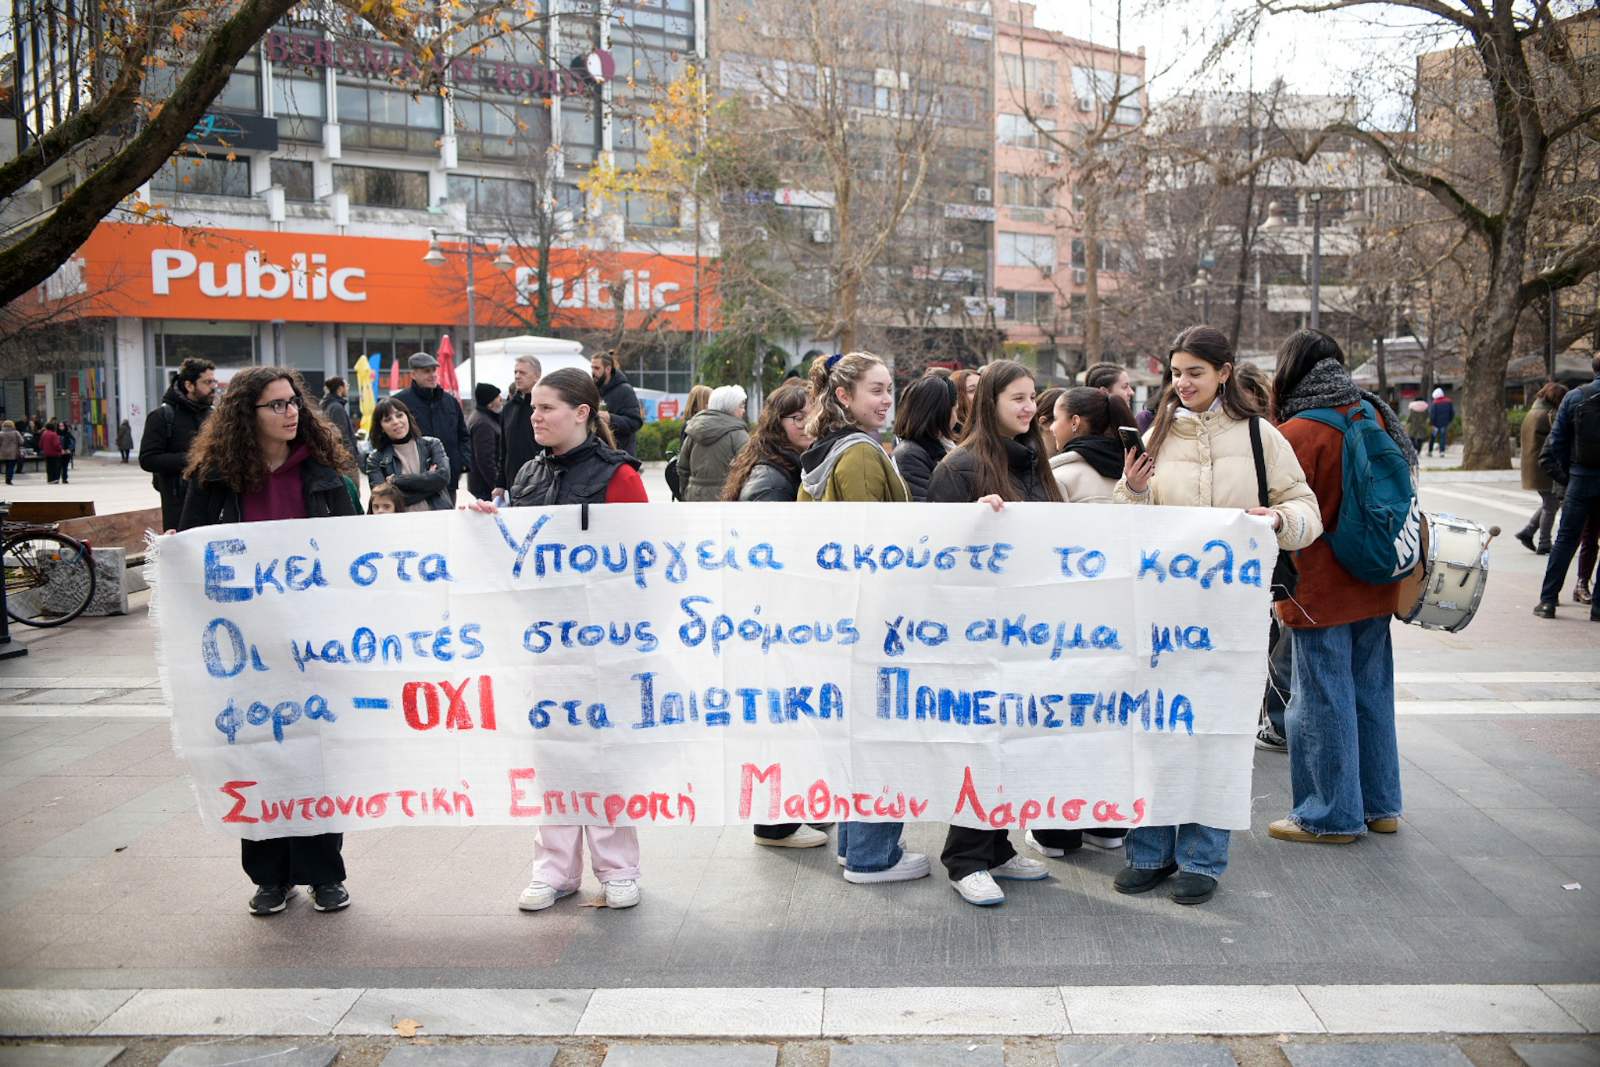 BERGMANN KORD
Public
Public
Εκεί στα Υπουργεία ακούστε το καλά
Οι μαθητές στους δρόμους για ακομα μια
φορα – ΟΧΙ στα ΙΔΙΩΤΙΚΑ ΠΑΝΕΠΙΣΤΗΜΙΑ
Συντονιστική Επιτροπή Μαθητών Λάρισας